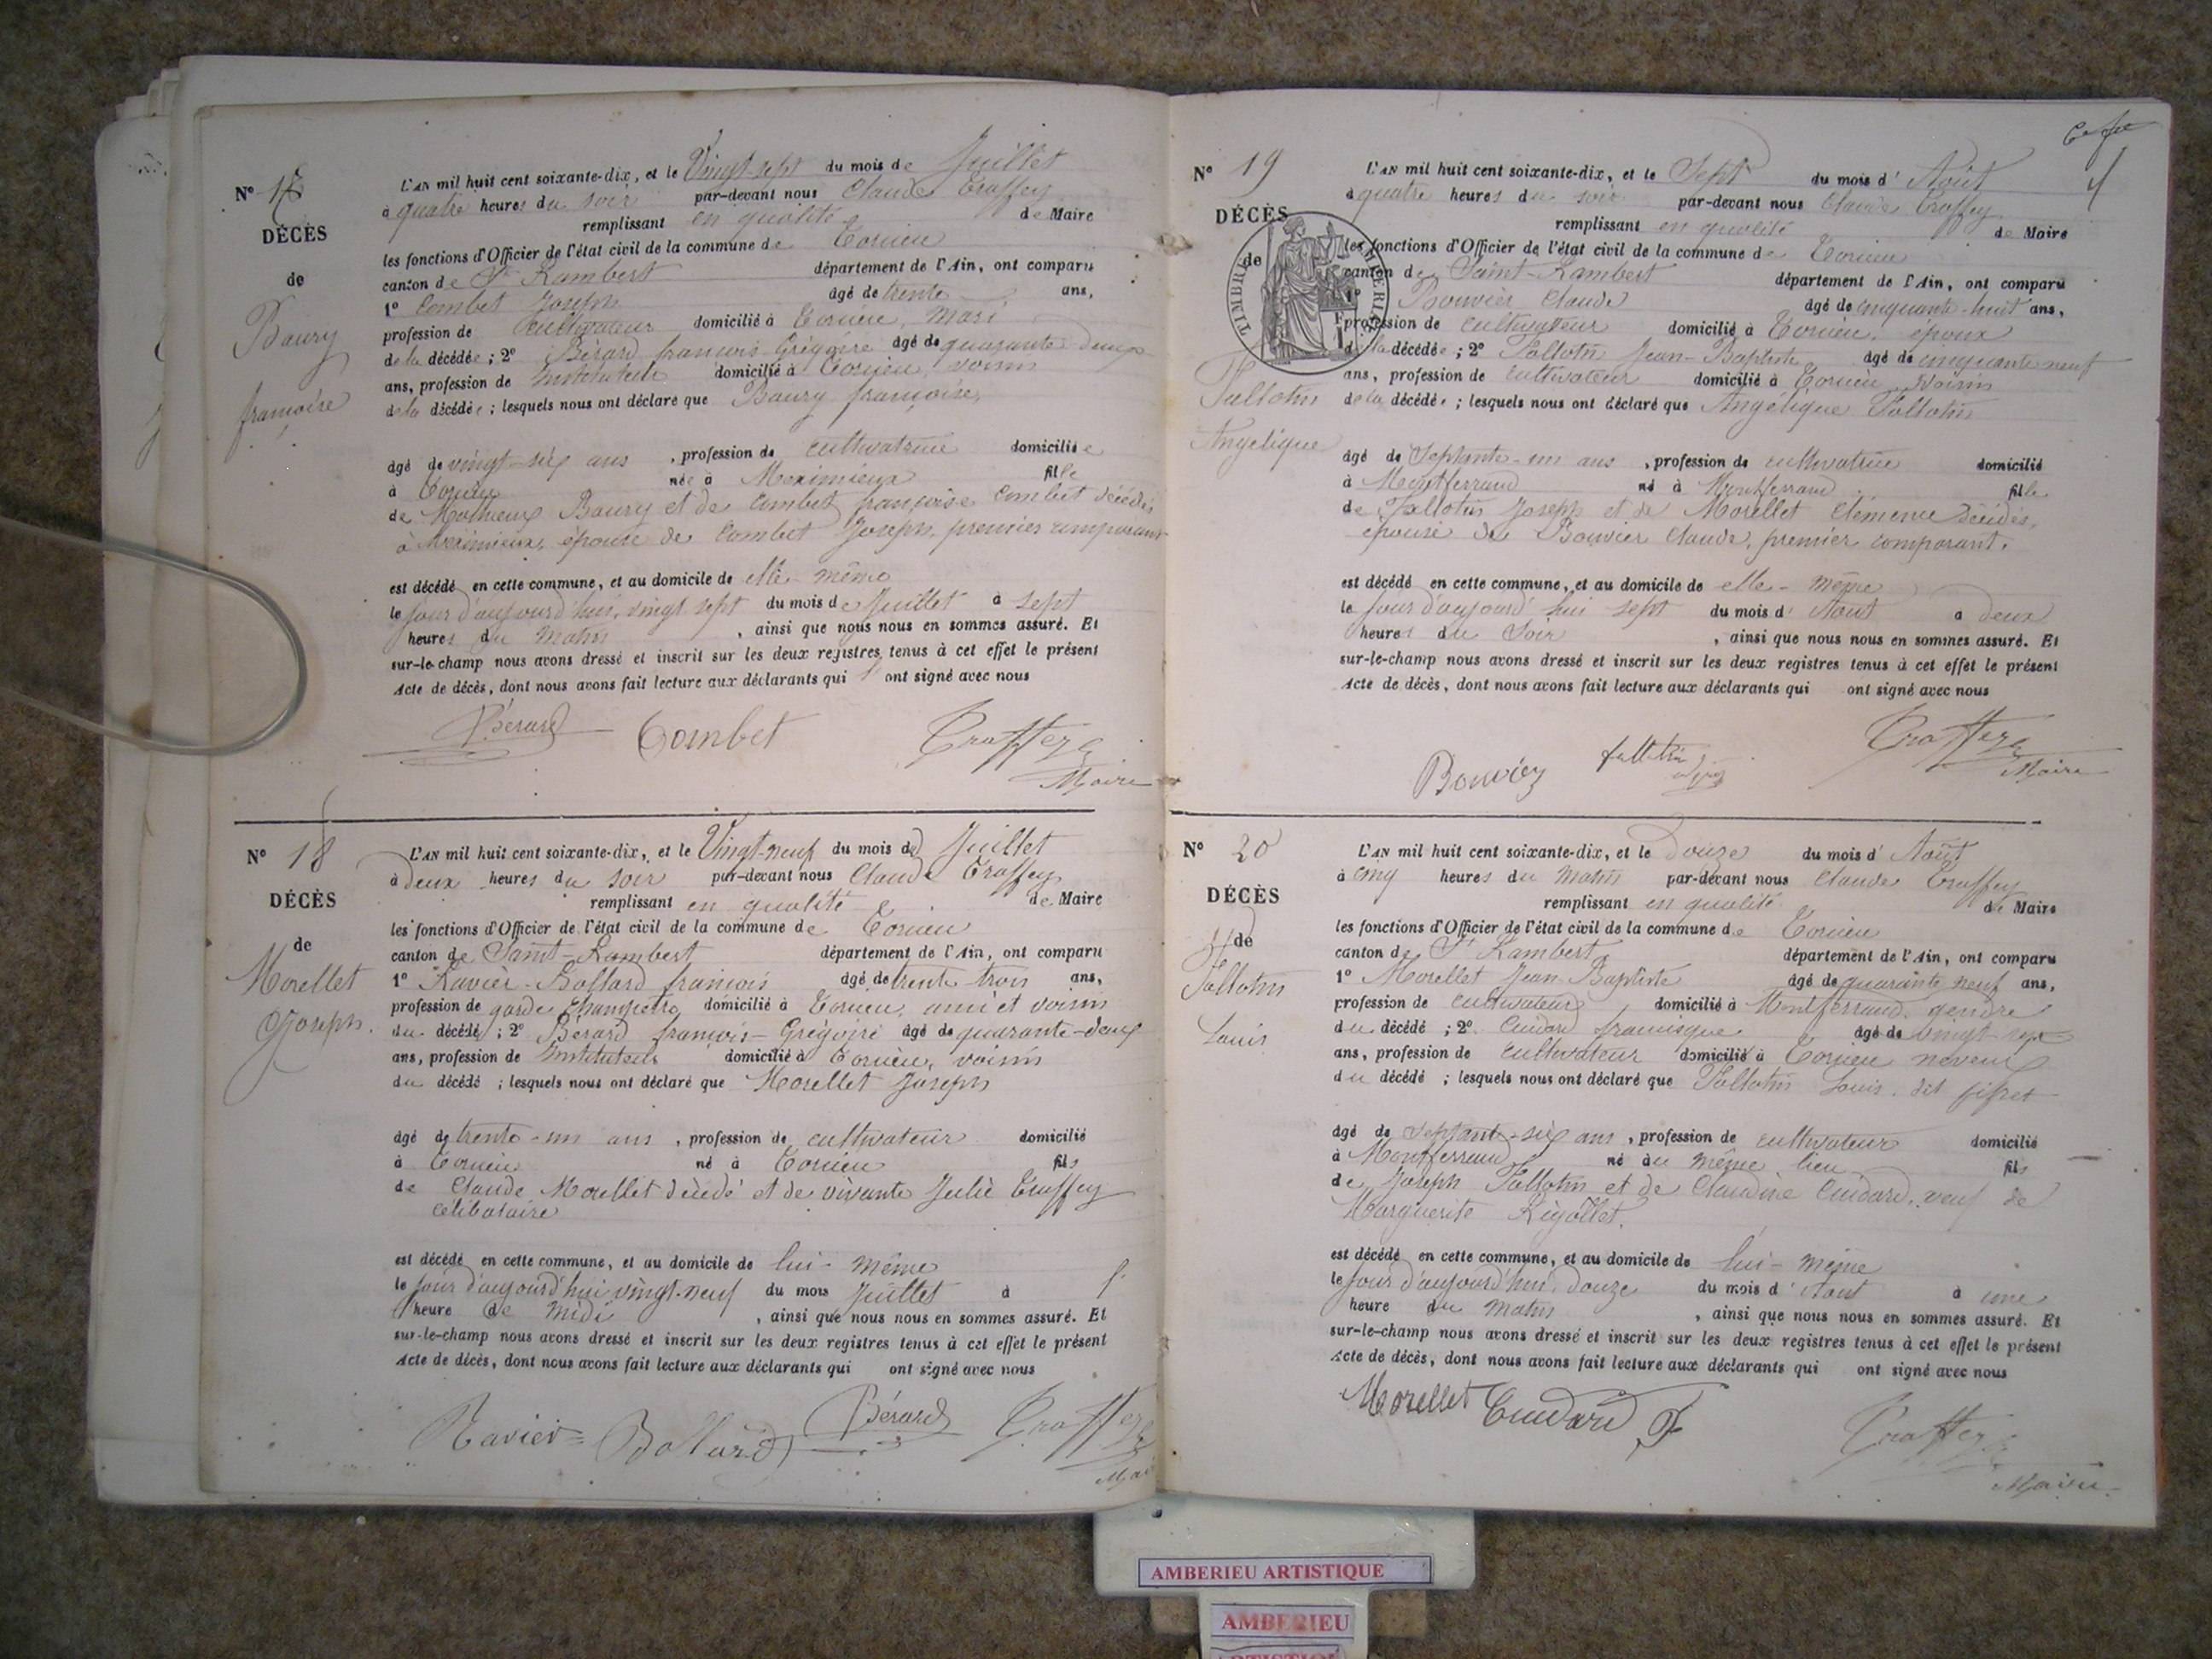 N° 17
DÉCÈS
de
Baury
francoise
L'AN mil huit cent soixante-dix, et le Vingt-sept du mois de Juillet
à quatre heures du soir par-devant nous Claude Truffey
remplissant en qualité de Maire
les fonctions d'Officier de l'état civil de la commune de Torcieu
canton de St Rambert département de l'Ain, ont comparu
1° Combet Joseph âgé de trente ans,
profession de cultivateur domicilié à Torcieu, mari
de la décédée ; 2° Bérard françois-Grégoire âgé de quarante deux
ans, profession de Instituteur domicilié à Torcieu, voisin
de la décédée ; lesquels nous ont déclaré que Baury françoise,
âgé de vingt-six ans , profession de cultivatrice domiciliée
à Torcieu née à Meximieux fille
de Mathieux Baury et de Combet françoise Combet décédés
à Meximieux, épouse de Combet Joseph, premier comparant
est décédé en cette commune, et au domicile de elle-même
le jour d'aujourd'hui, vingt sept du mois de Juillet à sept
heures du matin , ainsi que nous nous en sommes assuré. Et
sur-le-champ nous avons dressé et inscrit sur les deux registres tenus à cet effet le présent
Acte de décès, dont nous avons fait lecture aux déclarants qui ont signé avec nous
Bérard Combet Truffey
Maire
N° 18
DÉCÈS
de
Morellet
Joseph.
L'AN mil huit cent soixante-dix, et le Vingt-neuf du mois de Juillet
à deux heures du soir par-devant nous Claude Truffey
remplissant en qualité de Maire
les fonctions d'Officier de l'état civil de la commune de Torcieu
canton de Saint-Rambert département de l'Ain, ont comparu
1° Ravier-Bollard francois âgé de trente trois ans,
profession de garde champetre domicilié à Torcieu, ami et voisin
du décédé ; 2° Bérard francois-Grégoire âgé de quarante-deux
ans, profession de Instituteur domicilié à Torcieu, voisin
du décédé ; lesquels nous ont déclaré que Morellet Joseph
âgé de trente-un ans , profession de cultivateur domicilié
à Torcieu né à Torcieu fils
de Claude Morellet décédé et de vivante Julie Truffey
celibataire
est décédé en cette commune, et au domicile de lui-même
le jour d'aujourd'hui vingt-neuf du mois Juillet à
heure de midi , ainsi que nous nous en sommes assuré. Et
sur-le-champ nous avons dressé et inscrit sur les deux registres tenus à cet effet le présent
Acte de décès, dont nous avons fait lecture aux déclarants qui ont signé avec nous
Ravier=Bollard Bérard Truffey
N° 19
DÉCÈS
de
TIMBRE IMPERIAL
Tallotin
Angelique
4
L'AN mil huit cent soixante-dix, et le Sept du mois d' Août
à quatre heures du soir par-devant nous Claude Truffey
remplissant en qualité de Maire
les fonctions d'Officier de l'état civil de la commune de Torcieu
canton de Saint-Rambert département de l'Ain, ont comparu
1° Bouvier Claude âgé de cinquante-huit ans,
profession de cultivateur domicilié à Torcieu, époux
de la décédée ; 2° Tallotin Jean-Baptiste âgé de cinquante neuf
ans, profession de cultivateur domicilié à Torcieu, voisin
de la décédée ; lesquels nous ont déclaré que Angélique Tallotin
âgé de Septante-un ans , profession de cultivatrice domicilié
à Montferrand né à Montferrand fille
de Tallotin Joseph et de Morellet Clémence décédés,
épouse de Bouvier Claude, premier comparant.
est décédé en cette commune, et au domicile de elle-même
le jour d'aujourd'hui sept du mois d' Aout à deux
heures du Soir , ainsi que nous nous en sommes assuré. Et
sur-le-champ nous avons dressé et inscrit sur les deux registres tenus à cet effet le présent
Acte de décès, dont nous avons fait lecture aux déclarants qui ont signé avec nous
Bouvier Truffey
Maire
N° 20
DÉCÈS
de
Tallotin
Louis
L'AN mil huit cent soixante-dix, et le Douze du mois d' Août
à cinq heures du Matin par-devant nous Claude Truffey
remplissant en qualité de Maire
les fonctions d'Officier de l'état civil de la commune de Torcieu
canton de St Rambert département de l'Ain, ont comparu
1° Morellet Jean-Baptiste âgé de quarante neuf ans,
profession de cultivateur domicilié à Montferrand, gendre
du décédé ; 2° Cuidard francisque âgé de vingt sept
ans, profession de cultivateur domicilié à Torcieu neveu
du décédé ; lesquels nous ont déclaré que Tallotin Louis, dit fifret
âgé de Septante-six ans , profession de cultivateur domicilié
à Montferrand né au même lieu fils
de Joseph Tallotin et de Claudine Cuidard, veuf de
Marguerite Rigollet.
est décédé en cette commune, et au domicile de lui-même
le jour d'aujourd'hui, Douze du mois d' Aout à une
heure du matin , ainsi que nous nous en sommes assuré. Et
sur-le-champ nous avons dressé et inscrit sur les deux registres tenus à cet effet le présent
Acte de décès, dont nous avons fait lecture aux déclarants qui ont signé avec nous
Morellet Cuidard F Truffey
Maire
AMBERIEU ARTISTIQUE
AMBERIEU
ARTISTIQUE